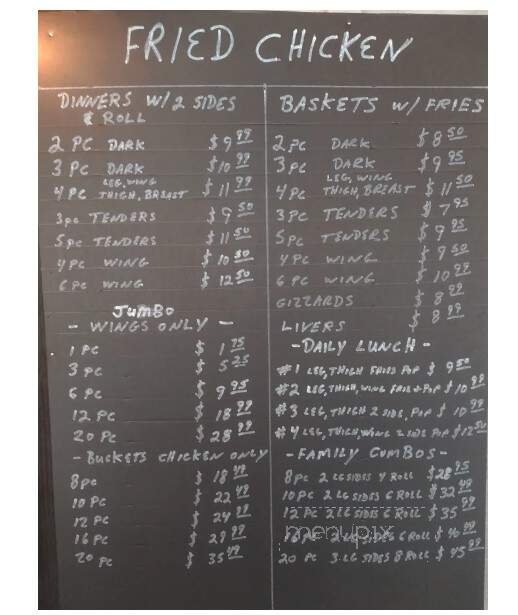 FRIED CHICKEN
DINNERS W/ 2 SIDES
& ROLL
2 PC DARK $9 99
3 PC DARK $10 99
4 PC LEG, WING THIGH, BREAST $11 99
3 PC TENDERS $9 50
5 PC TENDERS $11 50
4 PC WING $10 50
6 PC WING $12 50
Jumbo
- WINGS ONLY -
1 PC $1 75
3 PC $5 25
6 PC $9 95
12 PC $18 99
20 PC $28 99
- BUCKETS CHICKEN ONLY
8 PC $18 49
10 PC $22 49
12 PC $24 99
16 PC $29 99
20 PC $35 49
BASKETS W/ FRIES
2 PC DARK $8 50
3 PC DARK $9 95
4 PC LEG, WING THIGH, BREAST $11 50
3 PC TENDERS $7 95
5 PC TENDERS $9 95
4 PC WING $9 50
6 PC WING $10 99
GIZZARDS $8 99
LIVERS $8 99
- DAILY LUNCH -
#1 LEG, THIGH FRIES POP $9 50
#2 LEG, THIGH, WING FRIES POP $10 99
#3 LEG, THIGH 2 SIDE, POP $10 99
#4 LEG, THIGH, WING 2 SIDE POP $12 50
- FAMILY COMBOS -
8 PC 2 LG SIDES 4 ROLL $28 95
10 PC 2 LG SIDES 6 ROLL $32 49
12 PC 2 LG SIDES 6 ROLL $35 99
16 PC 2 LG SIDES 6 ROLL $40 99
20 PC 3 LG SIDES 8 ROLL $45 99
menupix